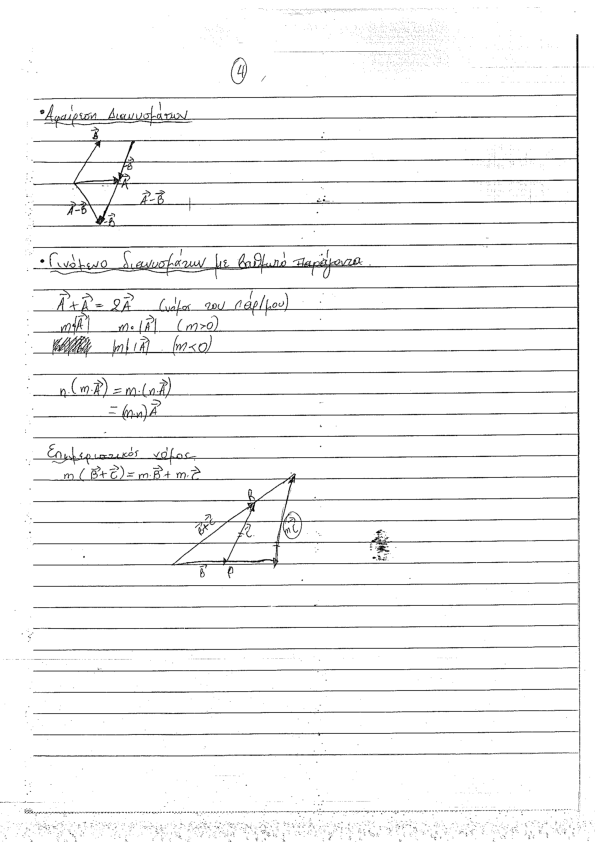 4
• Αφαίρεση Διανυσμάτων
B⃗
-B⃗
A⃗
A⃗-B⃗ A⃗-B⃗
-B⃗
• Γινόμενο διανυσμάτων με βαθμωτό παράγοντα.
A⃗+A⃗ = 2A⃗ (νόμος του παρ/μου)
m·|A⃗| m·|A⃗| (m>0)
|m|·|A⃗| (m<0)
n·(m·A⃗) = m·(n·A⃗)
= (m·n)A⃗
Επιμεριστικός νόμος
m(B⃗+C⃗) = m·B⃗ + m·C⃗
B
B⃗+C⃗ C⃗ mC⃗
B⃗